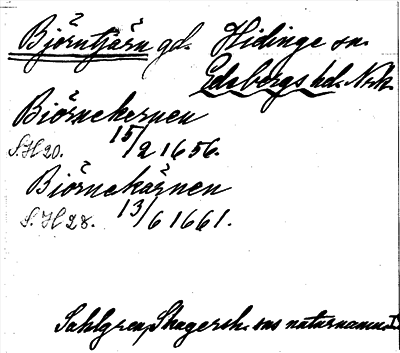 Björntjärn gd. Hidinge sn.
Edsbergs hd. Nrk.
Biörnekernen
S.H 20. 15/2 1656.
Biörnekärnen
S.H 28. 13/6 1661.
Sahlgren, Skagersh. sns naturnamn I